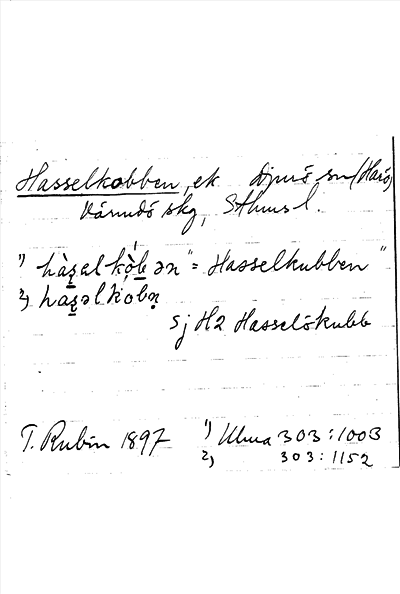 Hasselkobben, ek Djurö sn (Harö)
Värmdö skg, Sthms l.
1) hàsəlkòb ən "= Hasselkubben"
2) hàsəlkobn̥
Sj H2 Hasselökubb
T. Rubin 1897 1) Ulma 303:1003
2) 303:1152